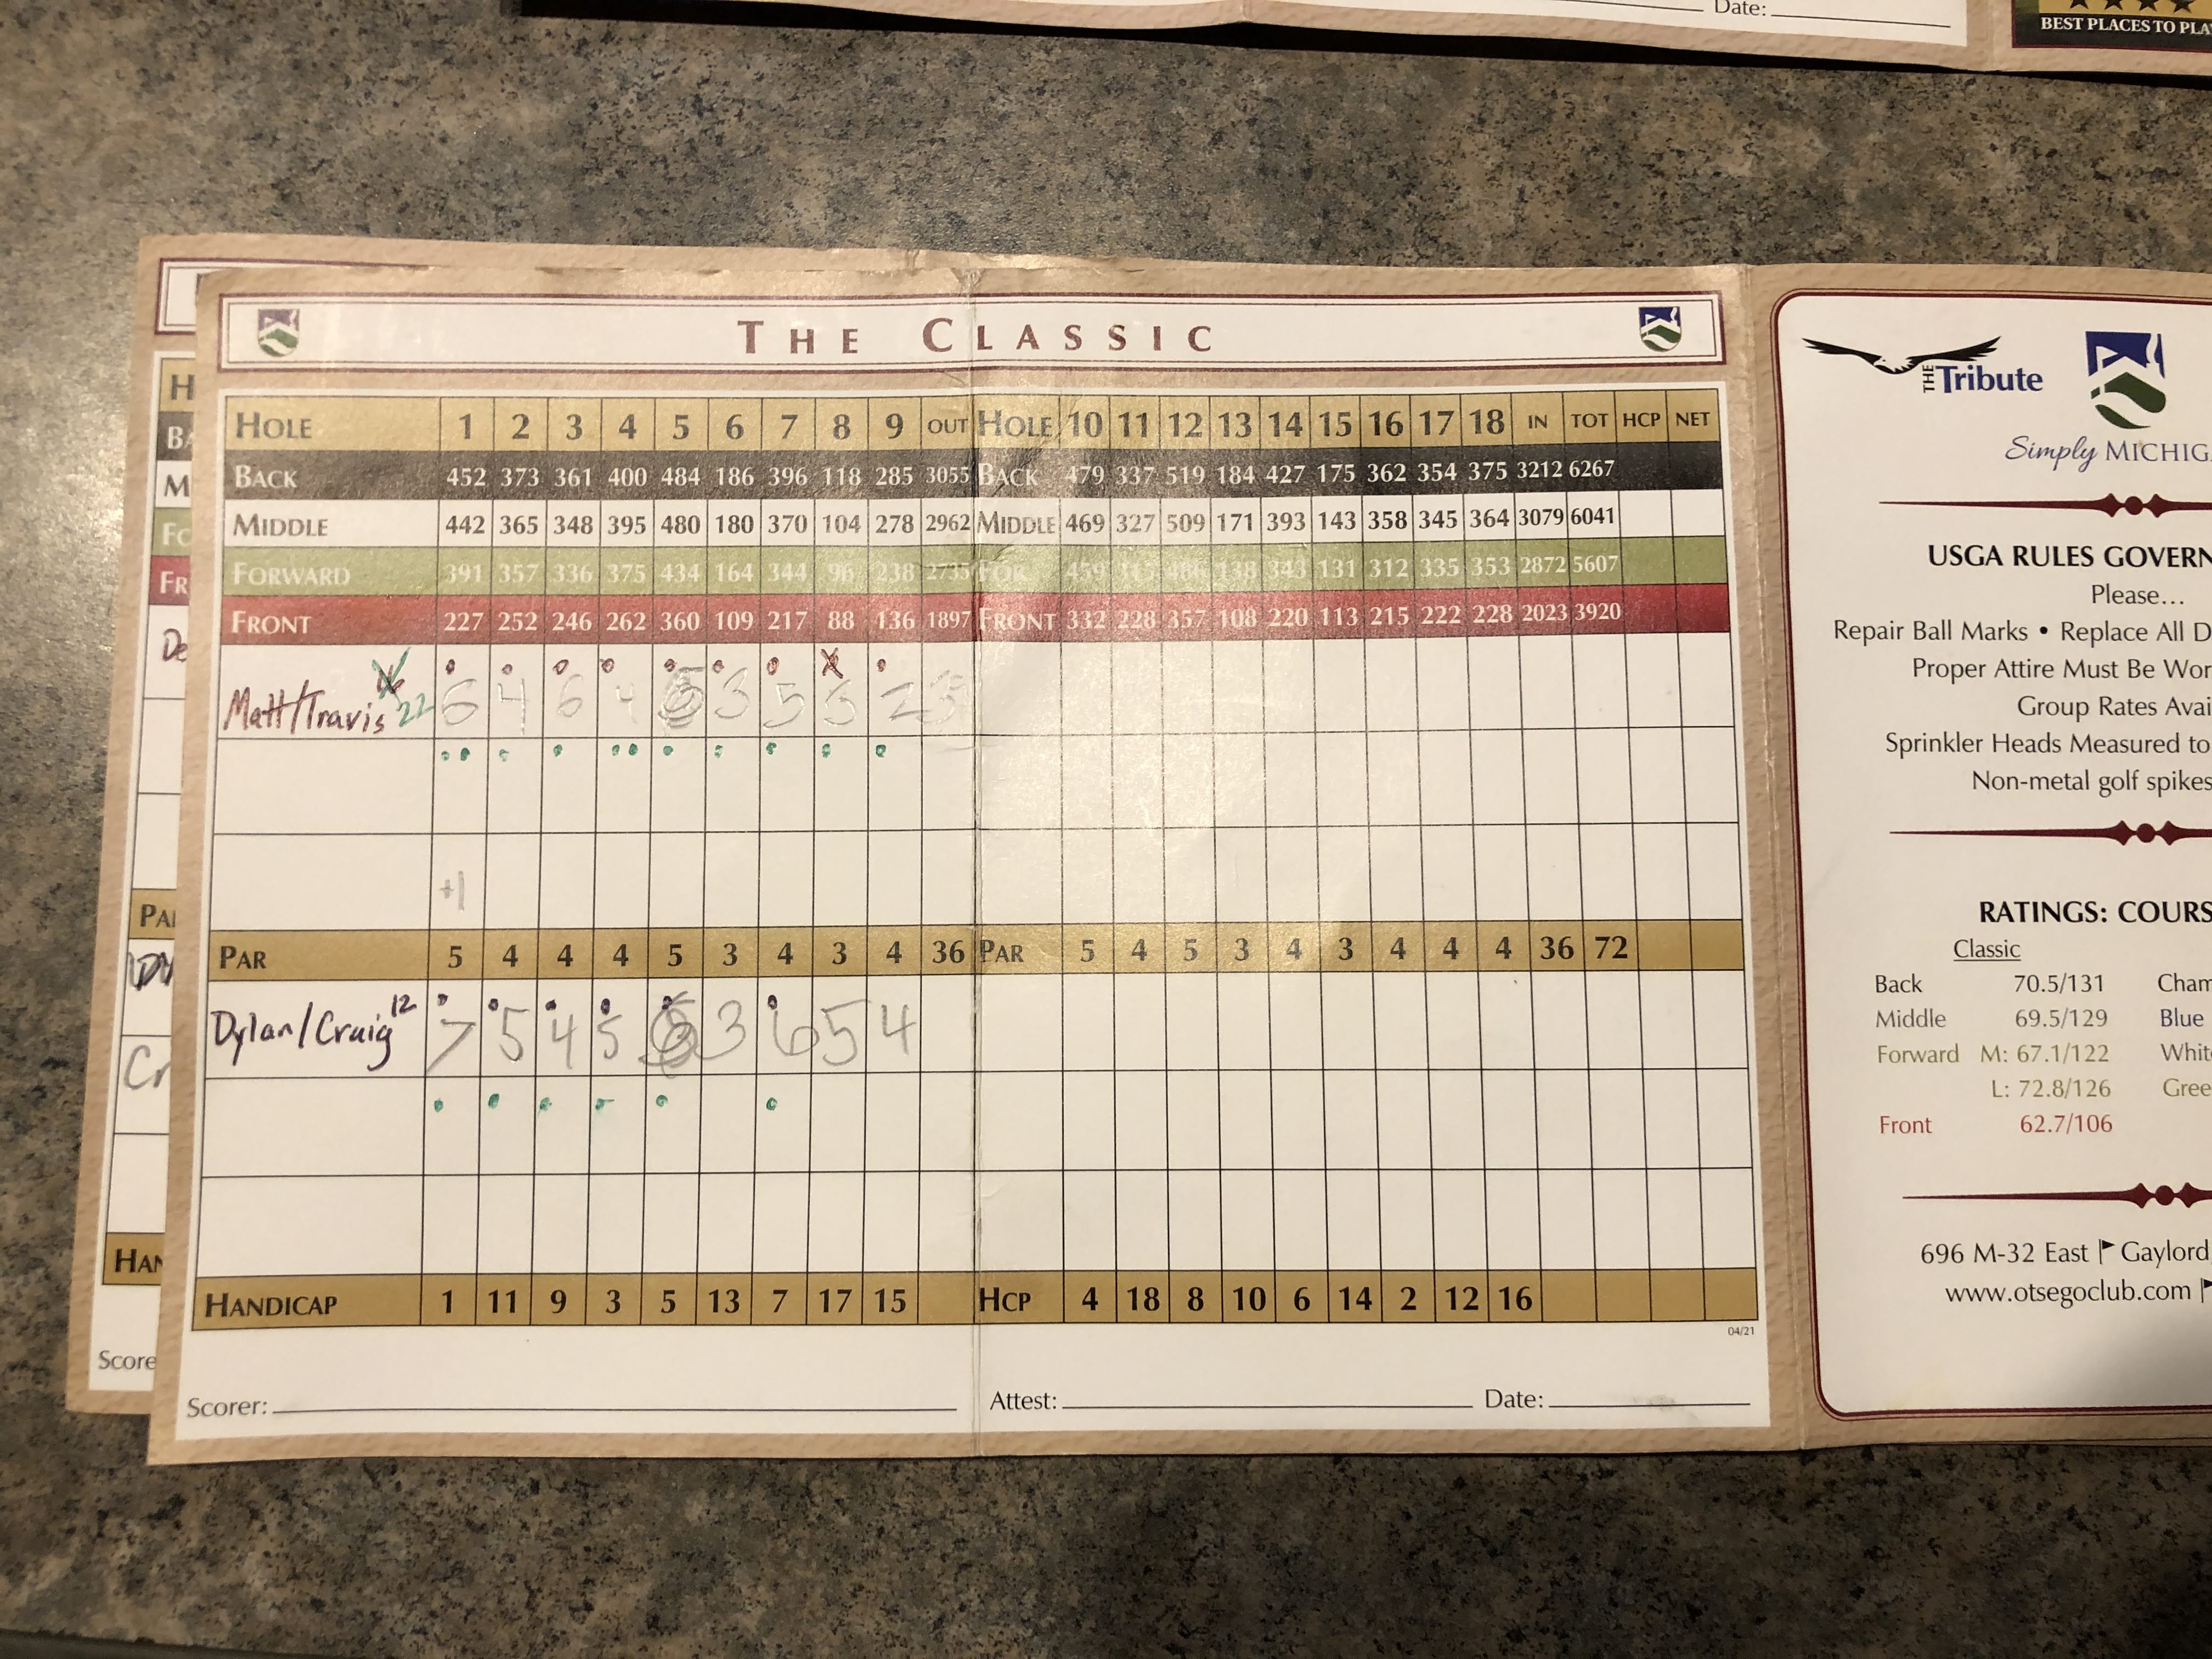 Date:
BEST PLACES TO PLA
THE CLASSIC
HOLE 1 2 3 4 5 6 7 8 9 OUT HOLE 10 11 12 13 14 15 16 17 18 IN TOT HCP NET
BACK 452 373 361 400 484 186 396 118 285 3055 BACK 479 337 519 184 427 175 362 354 375 3212 6267
MIDDLE 442 365 348 395 480 180 370 104 278 2962 MIDDLE 469 327 509 171 393 143 358 345 364 3079 6041
FORWARD 391 357 336 375 434 164 344 96 238 2735 FOR 459 317 486 138 343 131 312 335 353 2872 5607
FRONT 227 252 246 262 360 109 217 88 136 1897 FRONT 332 228 357 108 220 113 215 222 228 2023 3920
Matt/Travis 22 6 4 6 4 3 5 3 2
+1
PAR 5 4 4 4 5 3 4 3 4 36 PAR 5 4 5 3 4 3 4 4 4 36 72
Dylan/Craig 12 7 5 4 5 3 6 5 4
HANDICAP 1 11 9 3 5 13 7 17 15 HCP 4 18 8 10 6 14 2 12 16
04/21
Scorer: Attest: Date:
H
BA
M
FO
FR
De
PA
Cr
HAN
Score
THE Tribute
Simply MICHIG
USGA RULES GOVERN
Please...
Repair Ball Marks • Replace All D
Proper Attire Must Be Wor
Group Rates Avai
Sprinkler Heads Measured to
Non-metal golf spikes
RATINGS: COURS
Classic
Back 70.5/131 Cham
Middle 69.5/129 Blue
Forward M: 67.1/122 White
L: 72.8/126 Gree
Front 62.7/106
696 M-32 East Gaylord
www.otsegoclub.com